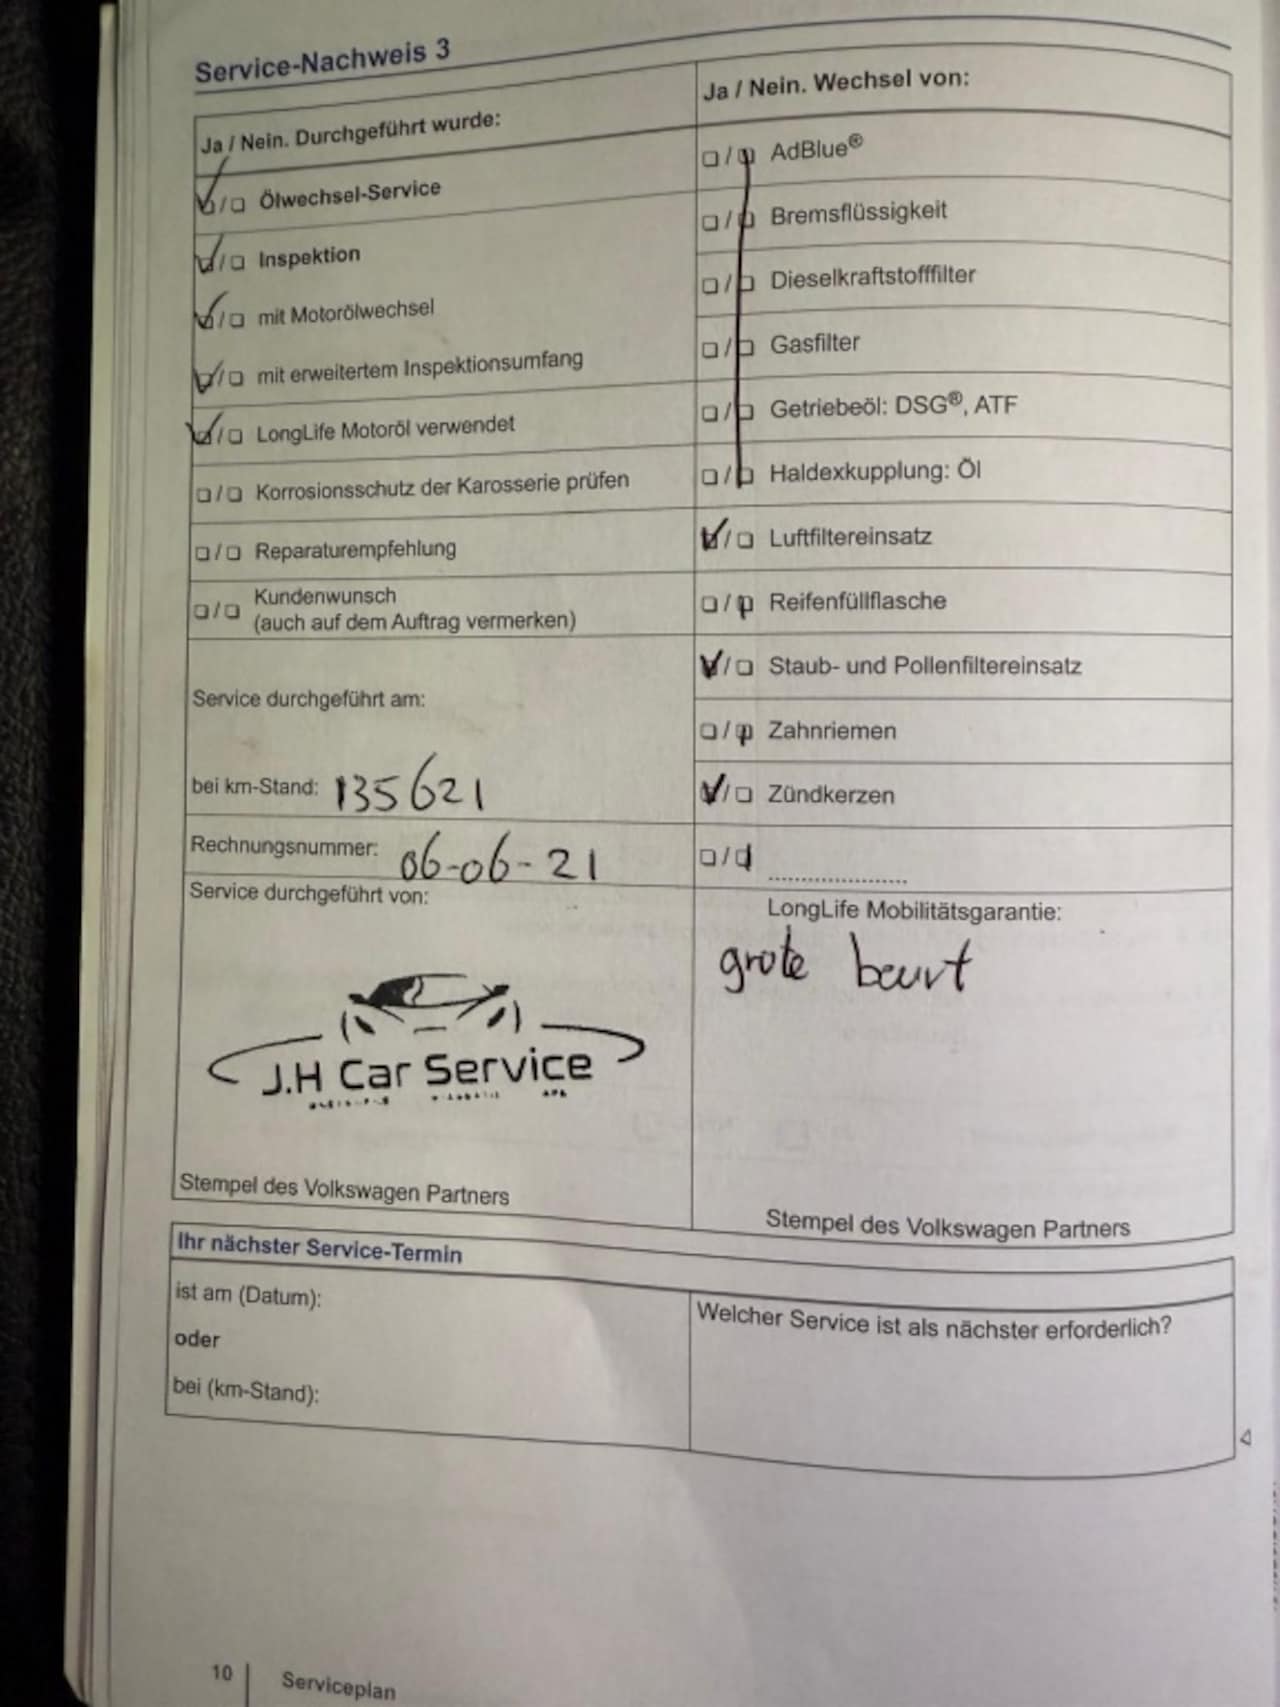 Service-Nachweis 3
Ja / Nein. Durchgeführt wurde:
Ölwechsel-Service
Inspektion
mit Motorölwechsel
mit erweitertem Inspektionsumfang
LongLife Motoröl verwendet
Korrosionsschutz der Karosserie prüfen
Reparaturempfehlung
Kundenwunsch
(auch auf dem Auftrag vermerken)
Service durchgeführt am:
bei km-Stand: 135621
Rechnungsnummer: 06-06-21
Service durchgeführt von:
J.H Car Service
Stempel des Volkswagen Partners
Ja / Nein. Wechsel von:
AdBlue®
Bremsflüssigkeit
Dieselkraftstofffilter
Gasfilter
Getriebeöl: DSG®, ATF
Haldexkupplung: Öl
Luftfiltereinsatz
Reifenfüllflasche
Staub- und Pollenfiltereinsatz
Zahnriemen
Zündkerzen
LongLife Mobilitätsgarantie:
grote beurt
Stempel des Volkswagen Partners
Ihr nächster Service-Termin
ist am (Datum):
oder
bei (km-Stand):
Welcher Service ist als nächster erforderlich?
10
Serviceplan